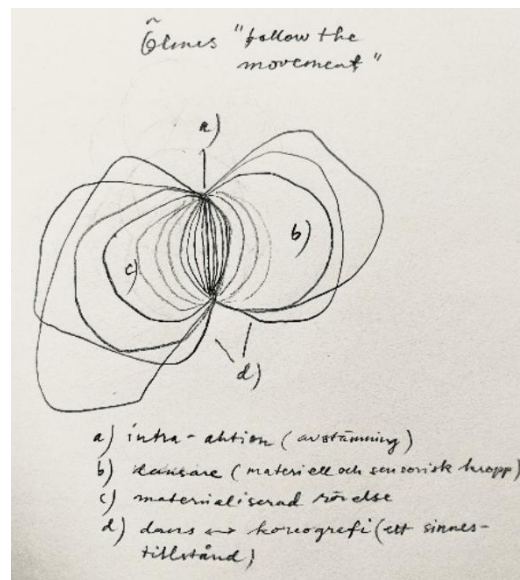 "follow the
movement"
a)
b)
c)
d)
a) intra-aktion (avstämning)
b) dansare (materiell och sensorisk kropp)
c) materialiserad rörelse
d) dans ↔ koreografi (ett sinnes-
tillstånd)